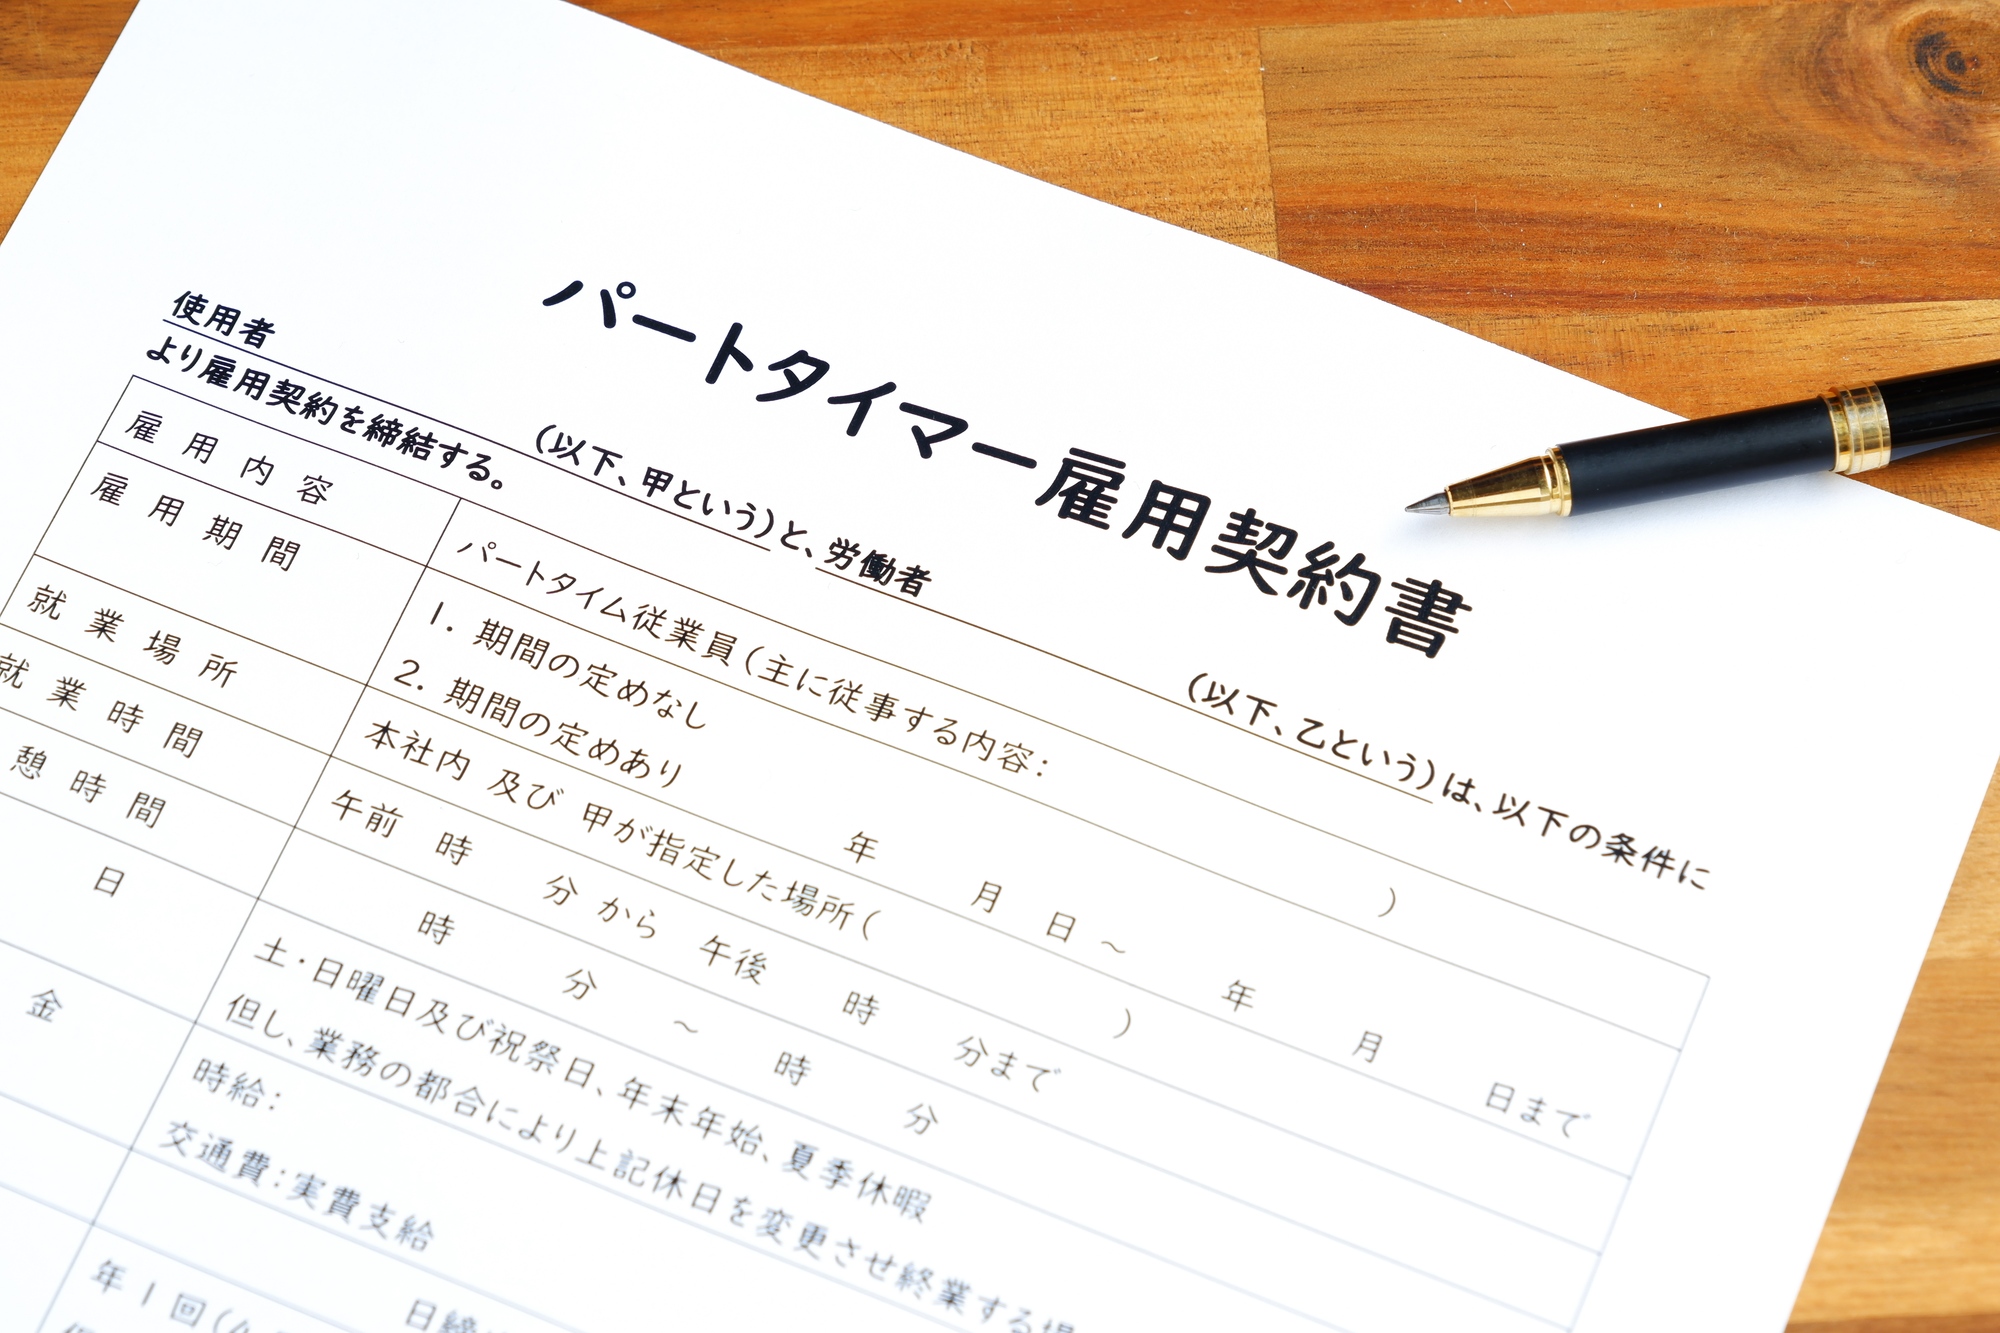 パートタイマー雇用契約書
使用者 (以下、甲という)と、労働者 (以下、乙という)は、以下の条件に
より雇用契約を締結する。
雇用内容 パートタイム従業員(主に従事する内容: )
雇用期間 1. 期間の定めなし
2. 期間の定めあり 年 月 日 ~ 年 月 日まで
就業場所 本社内 及び 甲が指定した場所( )
就業時間 午前 時 分 から 午後 時 分まで
憩時間 時 分 ~ 時 分
日 土・日曜日及び祝祭日、年末年始、夏季休暇
但し、業務の都合により上記休日を変更させ終業する場
金 時給:
交通費:実費支給
日締
年1回(